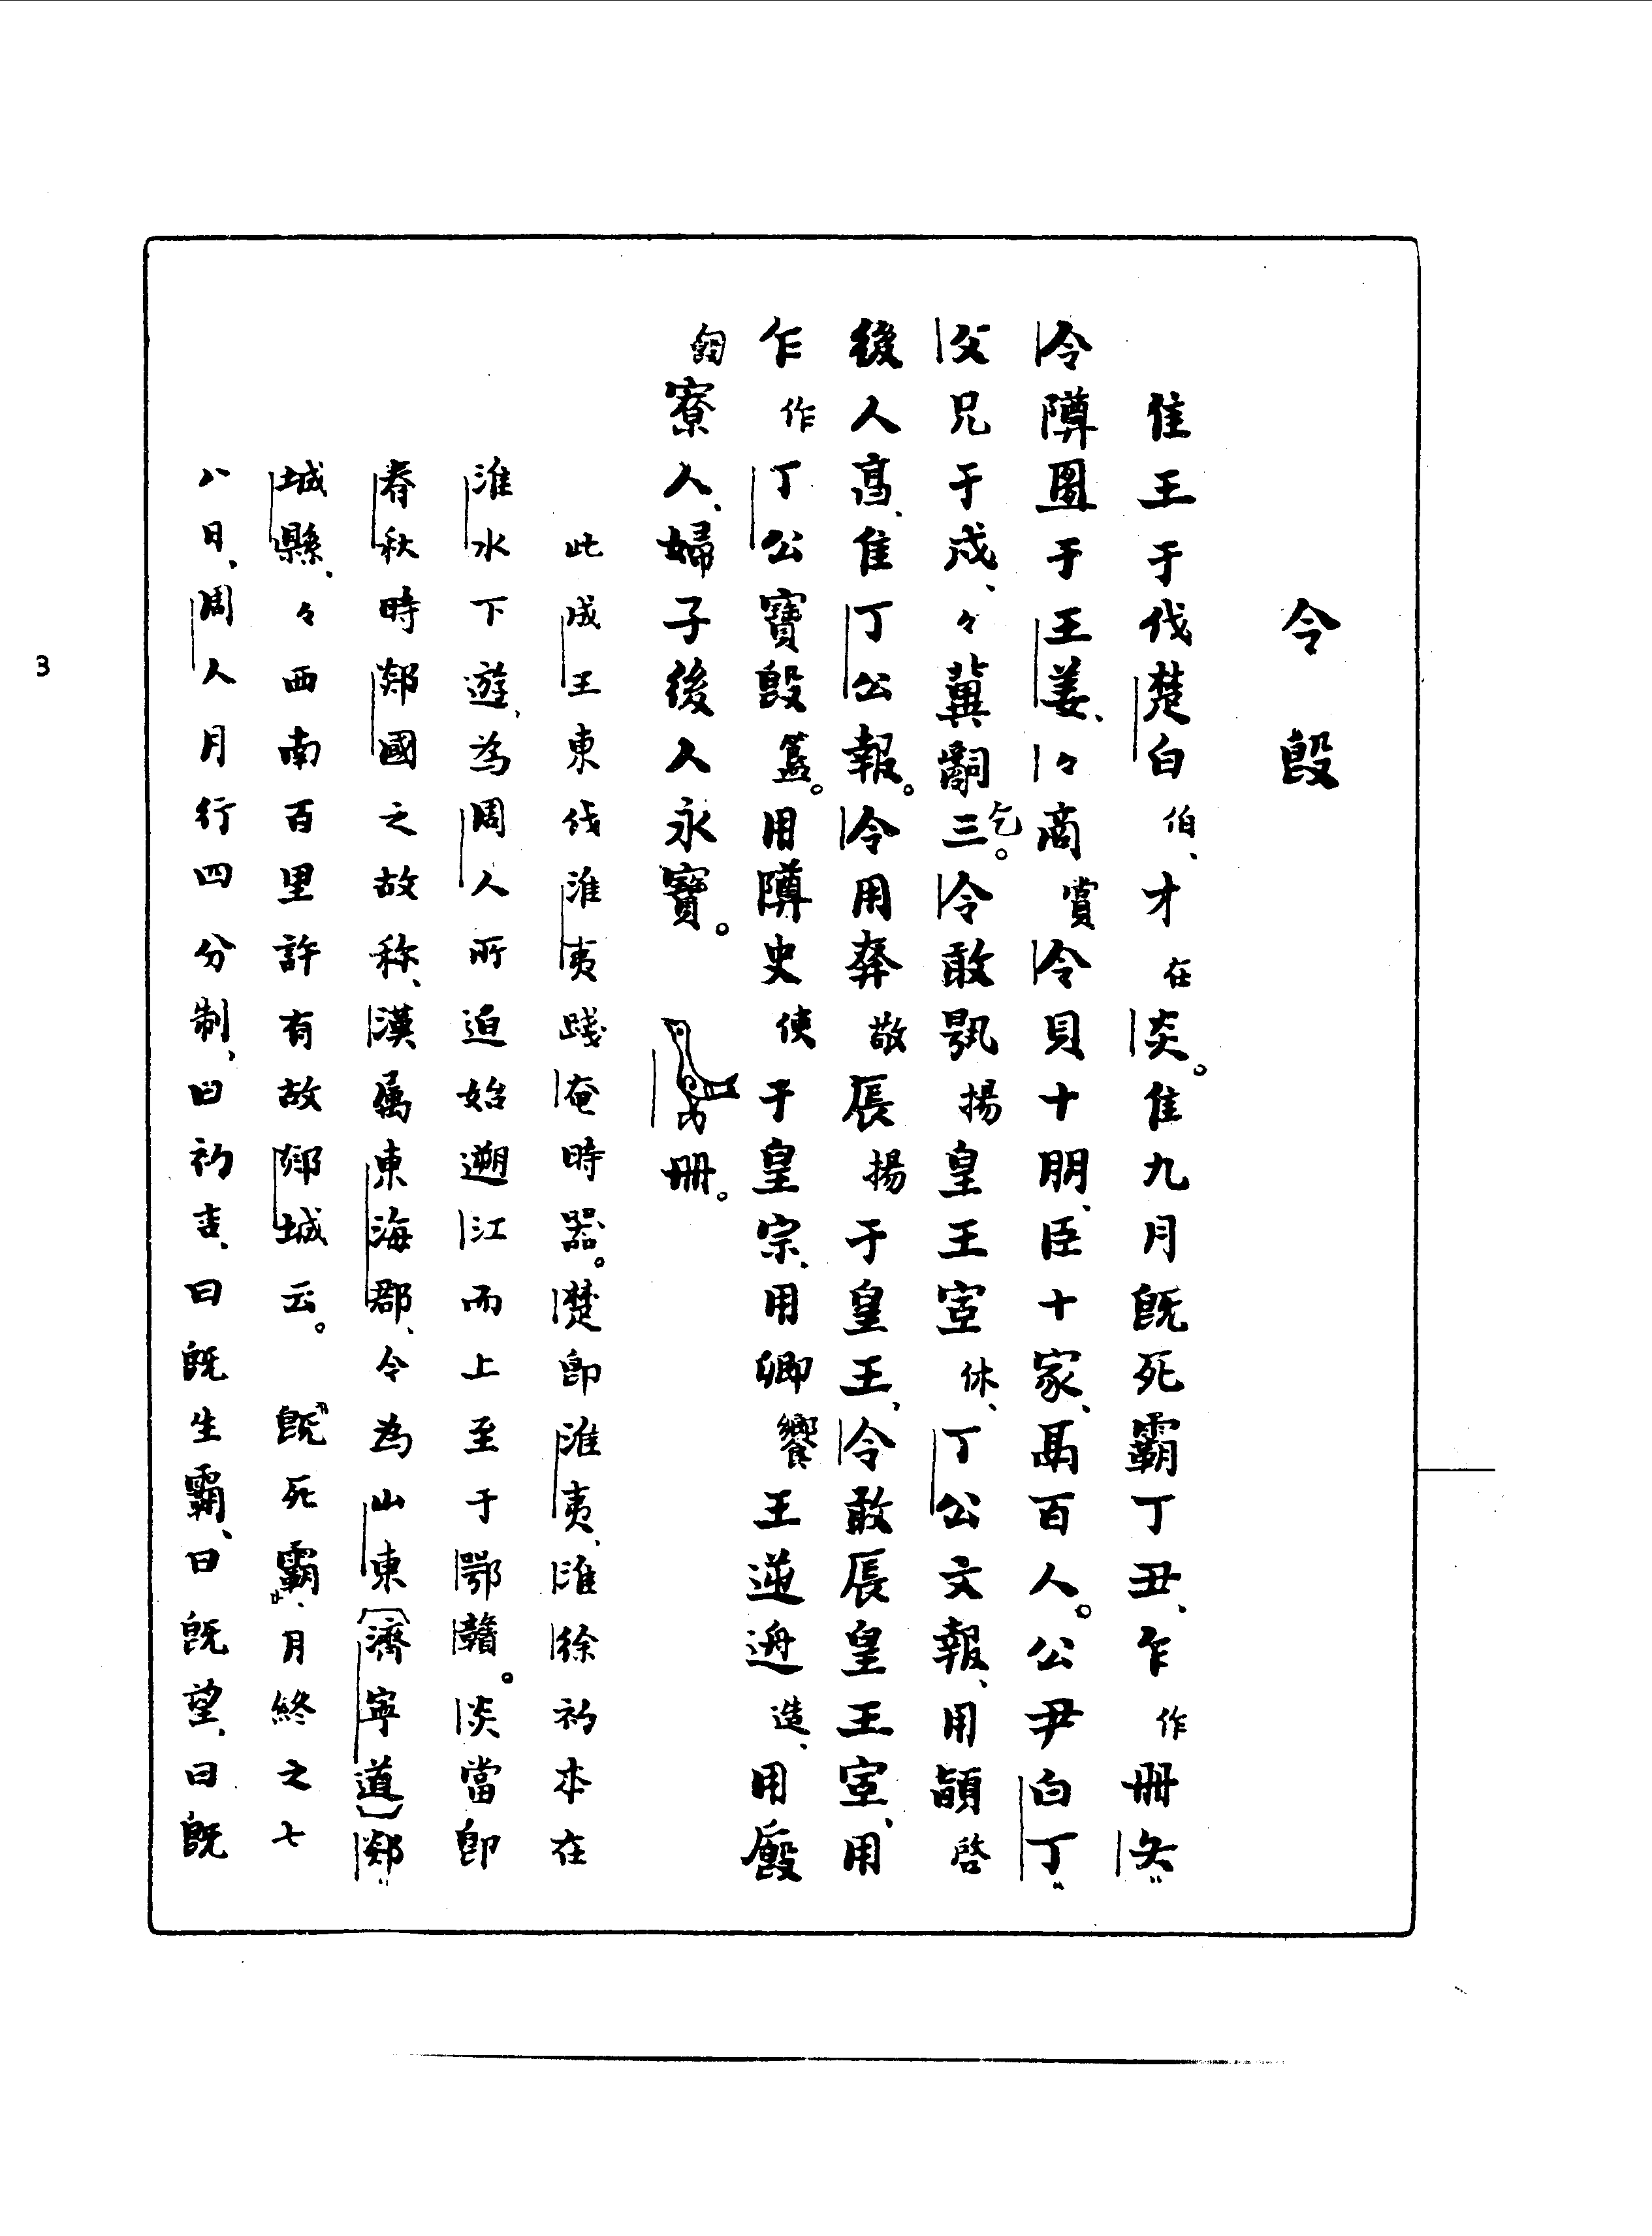 令𣪘
隹王于伐楚白伯、才在炎。隹九月既死霸丁丑、乍作冊夨
令𨺅圕于王姜、々商賞令貝十朋、臣十家、鬲百人。公尹白丁
父兄于戍、々冀嗣三乞。令敢揚皇王宔休、丁公文報、用𩒨啓
後人亯、隹丁公報。令用敬揚于皇王、令敢皇王宔、用
乍作丁公寶𣪘簋。用𨺅史使于皇宗、用卿饗王逆造、用
匓寮人、婦子後人永寶。冊。
此成王東伐淮夷踐奄時器。楚即淮夷、淮徐初本在
淮水下遊、為周人所迫始遡江而上至于鄂贛。炎當即
春秋時郯國之故称、漢屬東海郡、今為山東〔濟寧道〕郯
城縣、々西南百里許有故郯城云。“既死霸”、月終之七
八日、周人月行四分制、曰初吉、曰既生霸、曰既望、曰既
3